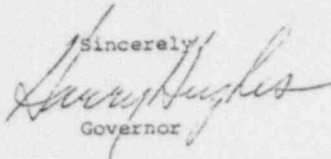 Sincerely,
Harry Hughes
Governor